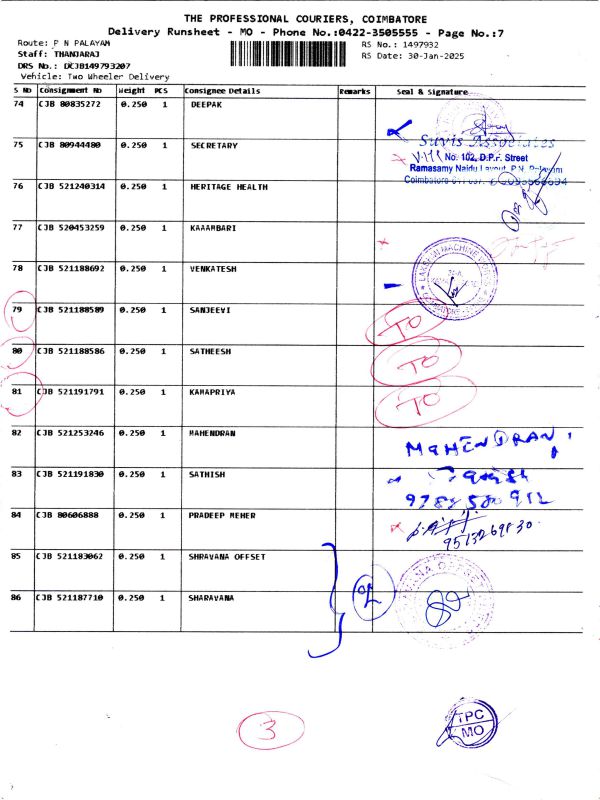 THE PROFESSIONAL COURIERS, COIMBATORE
Delivery Runsheet - MO - Phone No.:0422-3505555 - Page No.:7
Route: P N PALAYAM
RS No.: 1497932
Staff: THANJARAJ
RS Date: 30-Jan-2025
DRS No.: DCJB149793207
Vehicle: Two Wheeler Delivery
S No Consignment No Weight PCS Consignee Details Remarks Seal & Signature
74 CJB 80835272 0.250 1 DEEPAK
75 CJB 80944480 0.250 1 SECRETARY
Suvis Associates
No. 102, D.P.F. Street
Ramasamy Naidu Layout, P.N. Palayam
76 CJB 521240314 0.250 1 HERITAGE HEALTH
77 CJB 520453259 0.250 1 KAAAMBARI
78 CJB 521188692 0.250 1 VENKATESH
79 CJB 521188589 0.250 1 SANJEEVI TO
80 CJB 521188586 0.250 1 SATHEESH TO
81 CJB 521191791 0.250 1 KAMAPRIYA TO
82 CJB 521253246 0.250 1 MAHENDRAN MAHENDRAN
83 CJB 521191830 0.250 1 SATHISH
84 CJB 80606888 0.250 1 PRADEEP MEHER
85 CJB 521183062 0.250 1 SHRAVANA OFFSET
86 CJB 521187710 0.250 1 SHARAVANA
3
TPC
MO